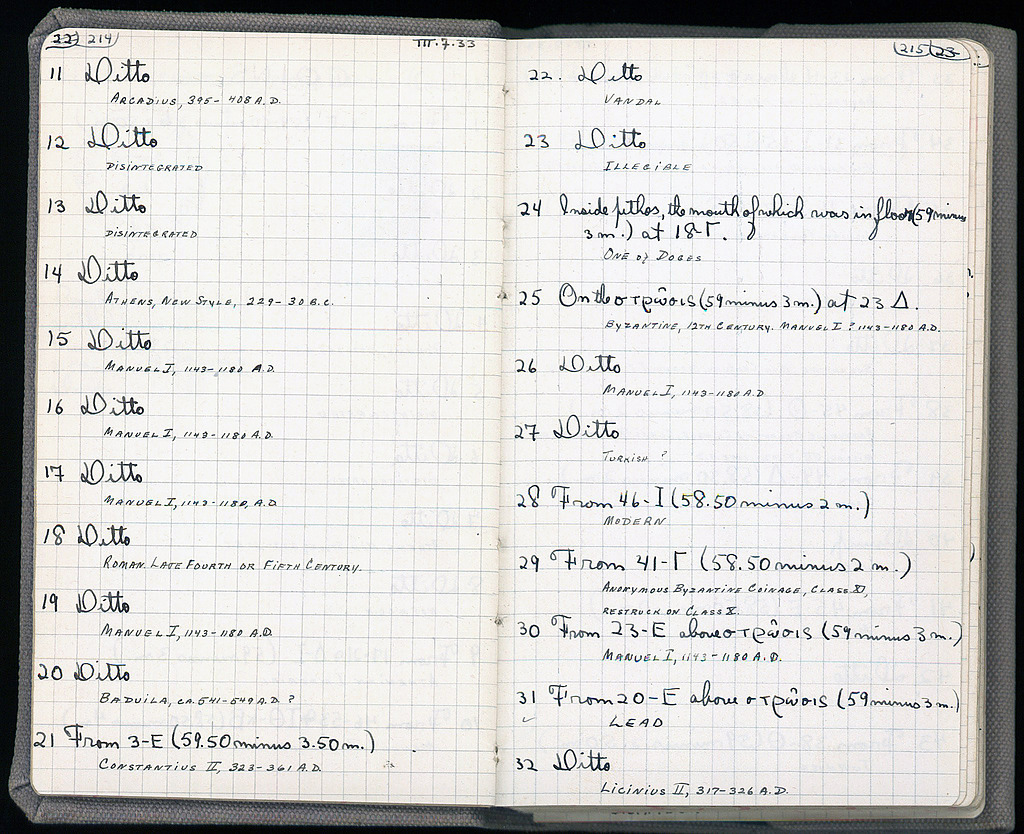 22 214
III.7.33
11 Ditto
ARCADIUS, 395-408 A.D.
12 Ditto
DISINTEGRATED
13 Ditto
DISINTEGRATED
14 Ditto
ATHENS, NEW STYLE, 229-30 B.C.
15 Ditto
MANUEL I, 1143-1180 A.D.
16 Ditto
MANUEL I, 1143-1180 A.D.
17 Ditto
MANUEL I, 1143-1180, A.D.
18 Ditto
ROMAN. LATE FOURTH OR FIFTH CENTURY.
19 Ditto
MANUEL I, 1143-1180 A.D.
20 Ditto
BADUILA, CA. 541-549 A.D. ?
21 From 3-E (59.50 minus 3.50 m.)
CONSTANTIUS II, 323-361 A.D.
215 23
22. Ditto
VANDAL
23 Ditto
ILLEGIBLE
24 Inside pithos, the mouth of which was in floor (59 minus
3 m.) at 18-Γ.
ONE OF DOGES
25 On the στρῶσις (59 minus 3 m.) at 23 Δ.
BYZANTINE, 12TH CENTURY. MANUEL I ? 1143-1180 A.D.
26 Ditto
MANUEL I, 1143-1180 A.D
27 Ditto
TURKISH ?
28 From 46-I (58.50 minus 2 m.)
MODERN
29 From 41-Γ (58.50 minus 2 m.)
ANONYMOUS BYZANTINE COINAGE, CLASS XI,
RESTRUCK ON CLASS X.
30 From 23-E above στρῶσις (59 minus 3 m.)
MANUEL I, 1143-1180 A.D.
31 From 20-E above στρῶσις (59 minus 3 m.)
LEAD
32 Ditto
LICINIUS II, 317-326 A.D.